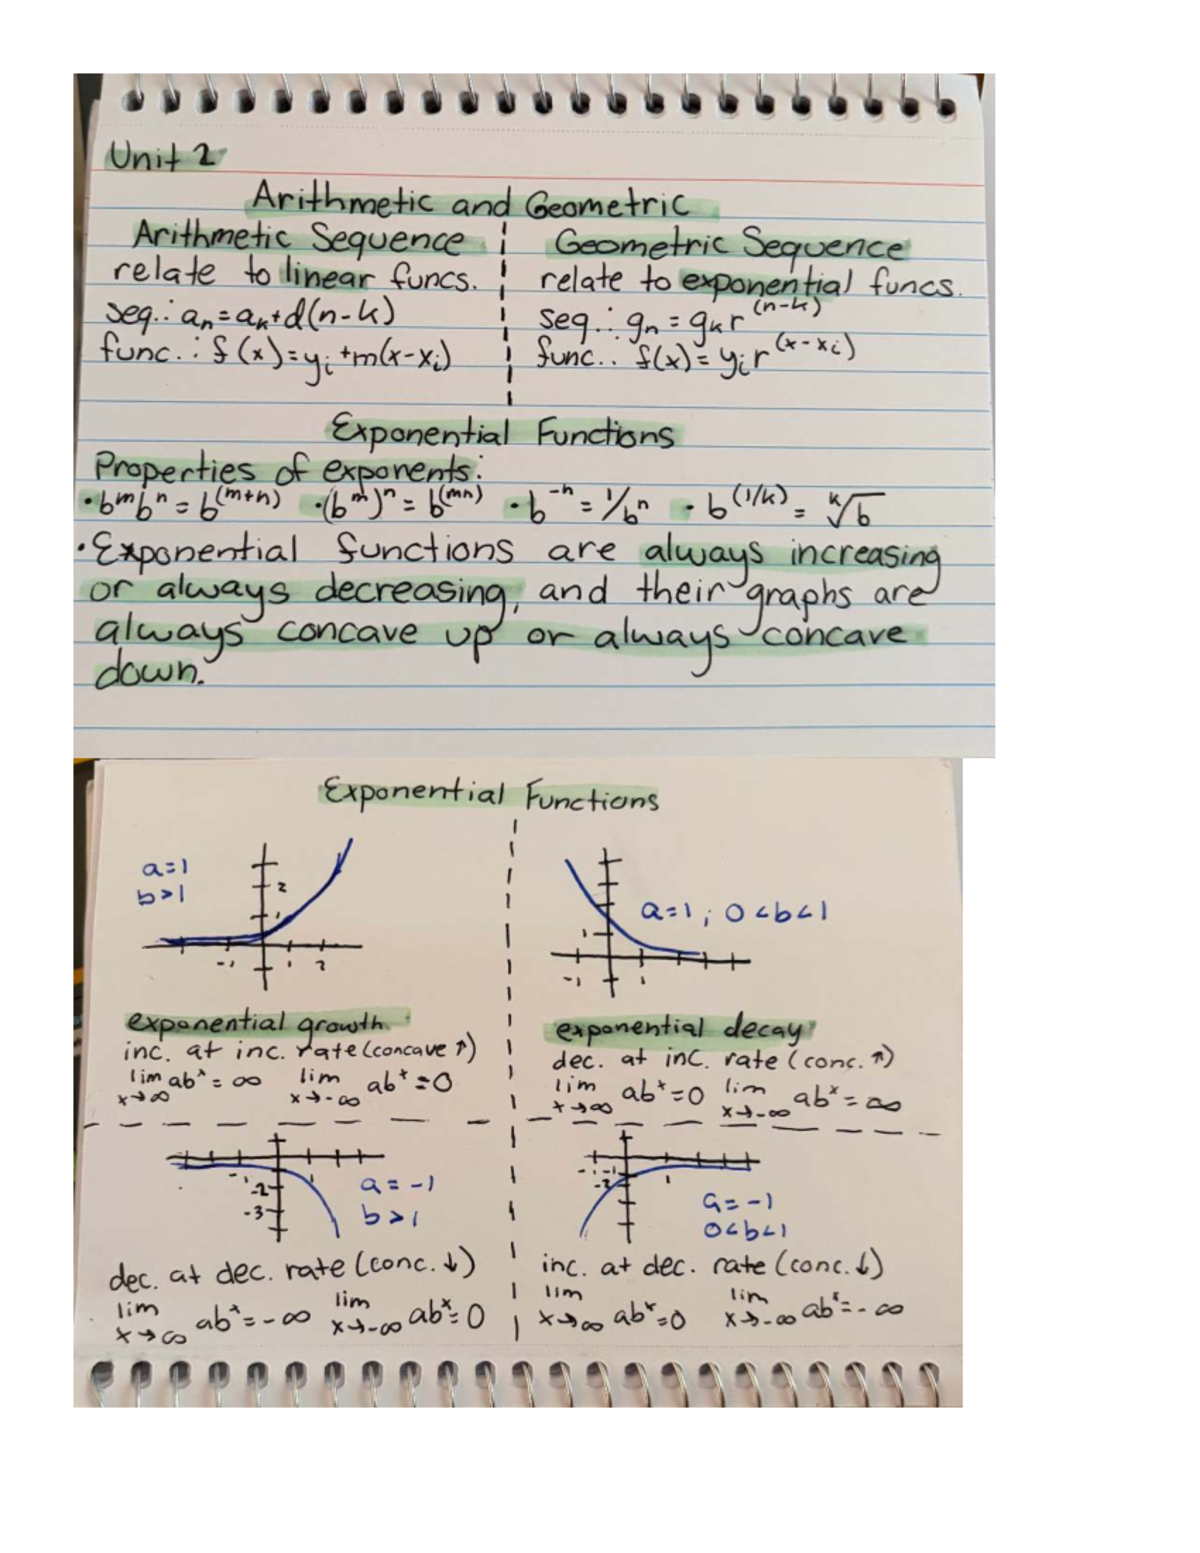 Unit 2
Arithmetic and Geometric
Arithmetic Sequence
relate to linear funcs.
seq.: aₙ=aₖ+d(n-k)
func.: f(x)=yᵢ+m(x-xᵢ)
Geometric Sequence
relate to exponential funcs.
seq.: gₙ = gₖr^(n-k)
func.: f(x)= yᵢr^(x-xᵢ)
Exponential Functions
Properties of exponents:
·b^m b^n = b^(m+n) ·(b^m)^n = b^(mn) ·b^-n = 1/b^n ·b^(1/k) = ᵏ√b
·Exponential functions are always increasing
or always decreasing, and their graphs are
always concave up or always concave
down.
Exponential Functions
a=1
b>1
2
1
-1 1 2
exponential growth
inc. at inc. rate (concave ↑)
lim x→∞ ab^x = ∞ lim x→-∞ ab^x = 0
a=1; 0<b<1
1
-1 1
exponential decay
dec. at inc. rate (conc. ↑)
lim x→∞ ab^x = 0 lim x→-∞ ab^x = ∞
-1 1
-2
-3
a = -1
b > 1
dec. at dec. rate (conc. ↓)
lim x→∞ ab^x = -∞ lim x→-∞ ab^x = 0
-1 -1 1
-2
a = -1
0<b<1
inc. at dec. rate (conc. ↓)
lim x→∞ ab^x = 0 lim x→-∞ ab^x = -∞